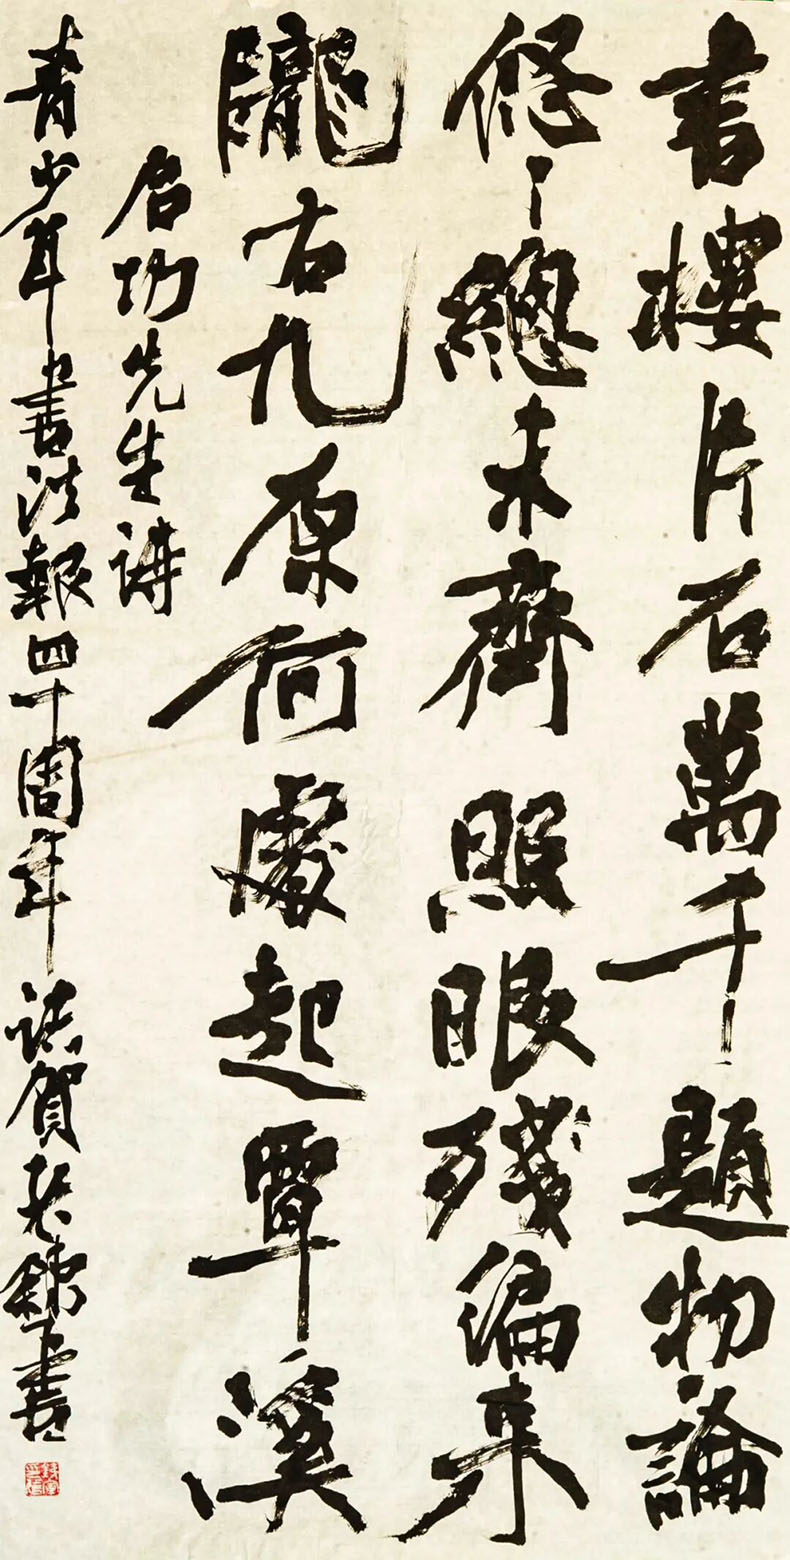 書樓片石萬千題物論
悠々總未齊照眼殘編來
隴右九原何處起覃溪
启功先生詩
青少年書法報四十周年誌賀書